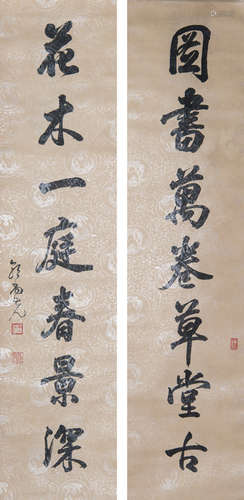 圖書萬卷草堂古
花木一庭春景深